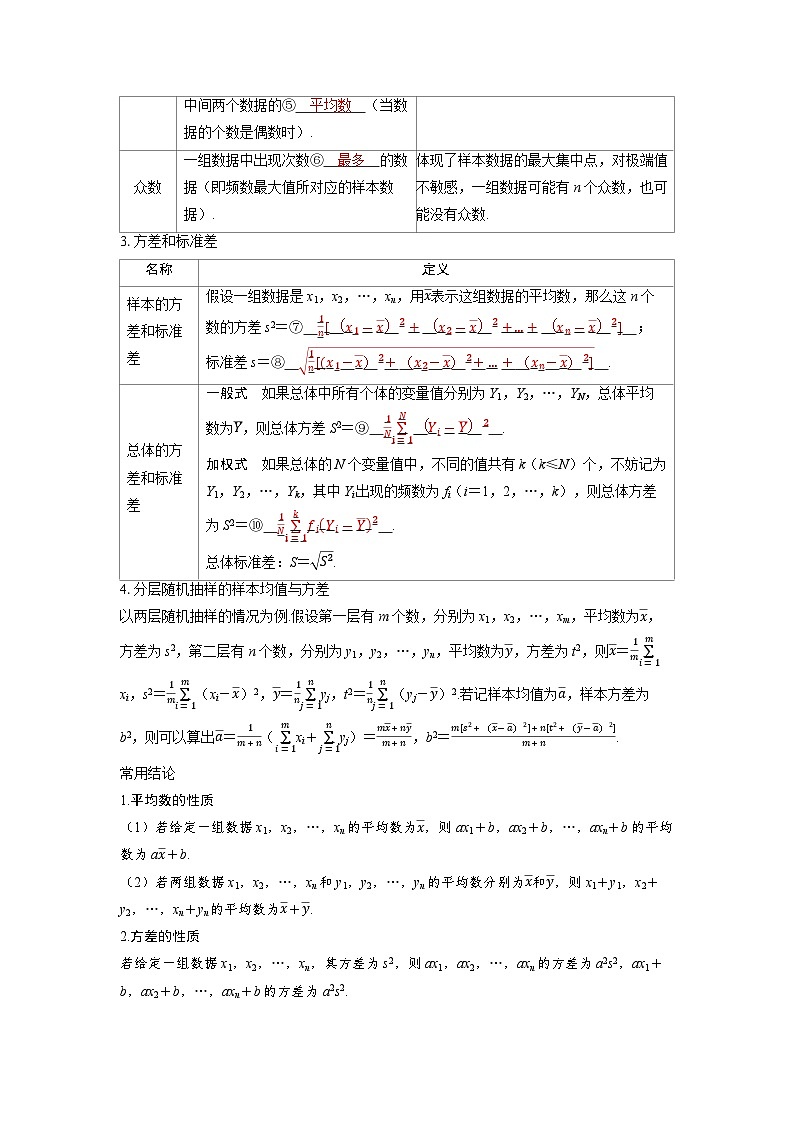 中间两个数据的⑤ 平均数 （当数
据的个数是偶数时）.
众数
一组数据中出现次数⑥ 最多 的数
据（即频数最大值所对应的样本数
据）.
体现了样本数据的最大集中点，对极端值
不敏感，一组数据可能有 n 个众数，也可
能没有众数.
3. 方差和标准差
名称
定义
样本的方
差和标准
差
假设一组数据是 x₁，x₂，…，xₙ，用x̅表示这组数据的平均数，那么这 n 个
数的方差 s²＝⑦ 1/n[（x₁－x̅）²＋（x₂－x̅）²＋…＋（xₙ－x̅）²] ；
标准差 s＝⑧ √(1/n[(x₁－x̅）²＋（x₂－x̅）²＋…＋（xₙ－x̅）²]) .
总体的方
差和标准
差
一般式　如果总体中所有个体的变量值分别为 Y₁，Y₂，…，Y_N，总体平均
数为Y̅，则总体方差 S²＝⑨ 1/N ∑_{i＝1}^{N}（Y_i－Y̅）² .
加权式　如果总体的 N 个变量值中，不同的值共有 k（k≤N）个，不妨记为
Y₁，Y₂，…，Y_k，其中 Y_i出现的频数为 f_i（i＝1，2，…，k），则总体方差
为 S²＝⑩ 1/N ∑_{i＝1}^{k} f_i(Y_i－Y̅)² .
总体标准差：S＝√(S²).
4. 分层随机抽样的样本均值与方差
以两层随机抽样的情况为例.假设第一层有 m 个数，分别为 x₁，x₂，…，xₘ，平均数为x̅，
方差为 s²，第二层有 n 个数，分别为 y₁，y₂，…，yₙ，平均数为y̅，方差为 t²，则x̅＝1/m ∑_{i＝1}^{m}
x_i，s²＝1/m ∑_{i＝1}^{m}（x_i－x̅）²，y̅＝1/n ∑_{j＝1}^{n} y_j，t²＝1/n ∑_{j＝1}^{n}（y_j－y̅）².若记样本均值为a̅，样本方差为
b²，则可以算出a̅＝1/(m＋n)（∑_{i＝1}^{m} x_i＋∑_{j＝1}^{n} y_j）＝(mx̅＋ny̅)/(m＋n)，b²＝(m[s²＋（x̅－a̅）²]＋n[t²＋（y̅－a̅）²])/(m＋n).
常用结论
1.平均数的性质
（1）若给定一组数据 x₁，x₂，…，xₙ的平均数为x̅，则 ax₁＋b，ax₂＋b，…，axₙ＋b 的平均
数为 ax̅＋b.
（2）若两组数据 x₁，x₂，…，xₙ和 y₁，y₂，…，yₙ的平均数分别为x̅和y̅，则 x₁＋y₁，x₂＋
y₂，…，xₙ＋yₙ的平均数为x̅＋y̅.
2.方差的性质
若给定一组数据 x₁，x₂，…，xₙ，其方差为 s²，则 ax₁，ax₂，…，axₙ的方差为 a²s²，ax₁＋
b，ax₂＋b，…，axₙ＋b 的方差为 a²s².